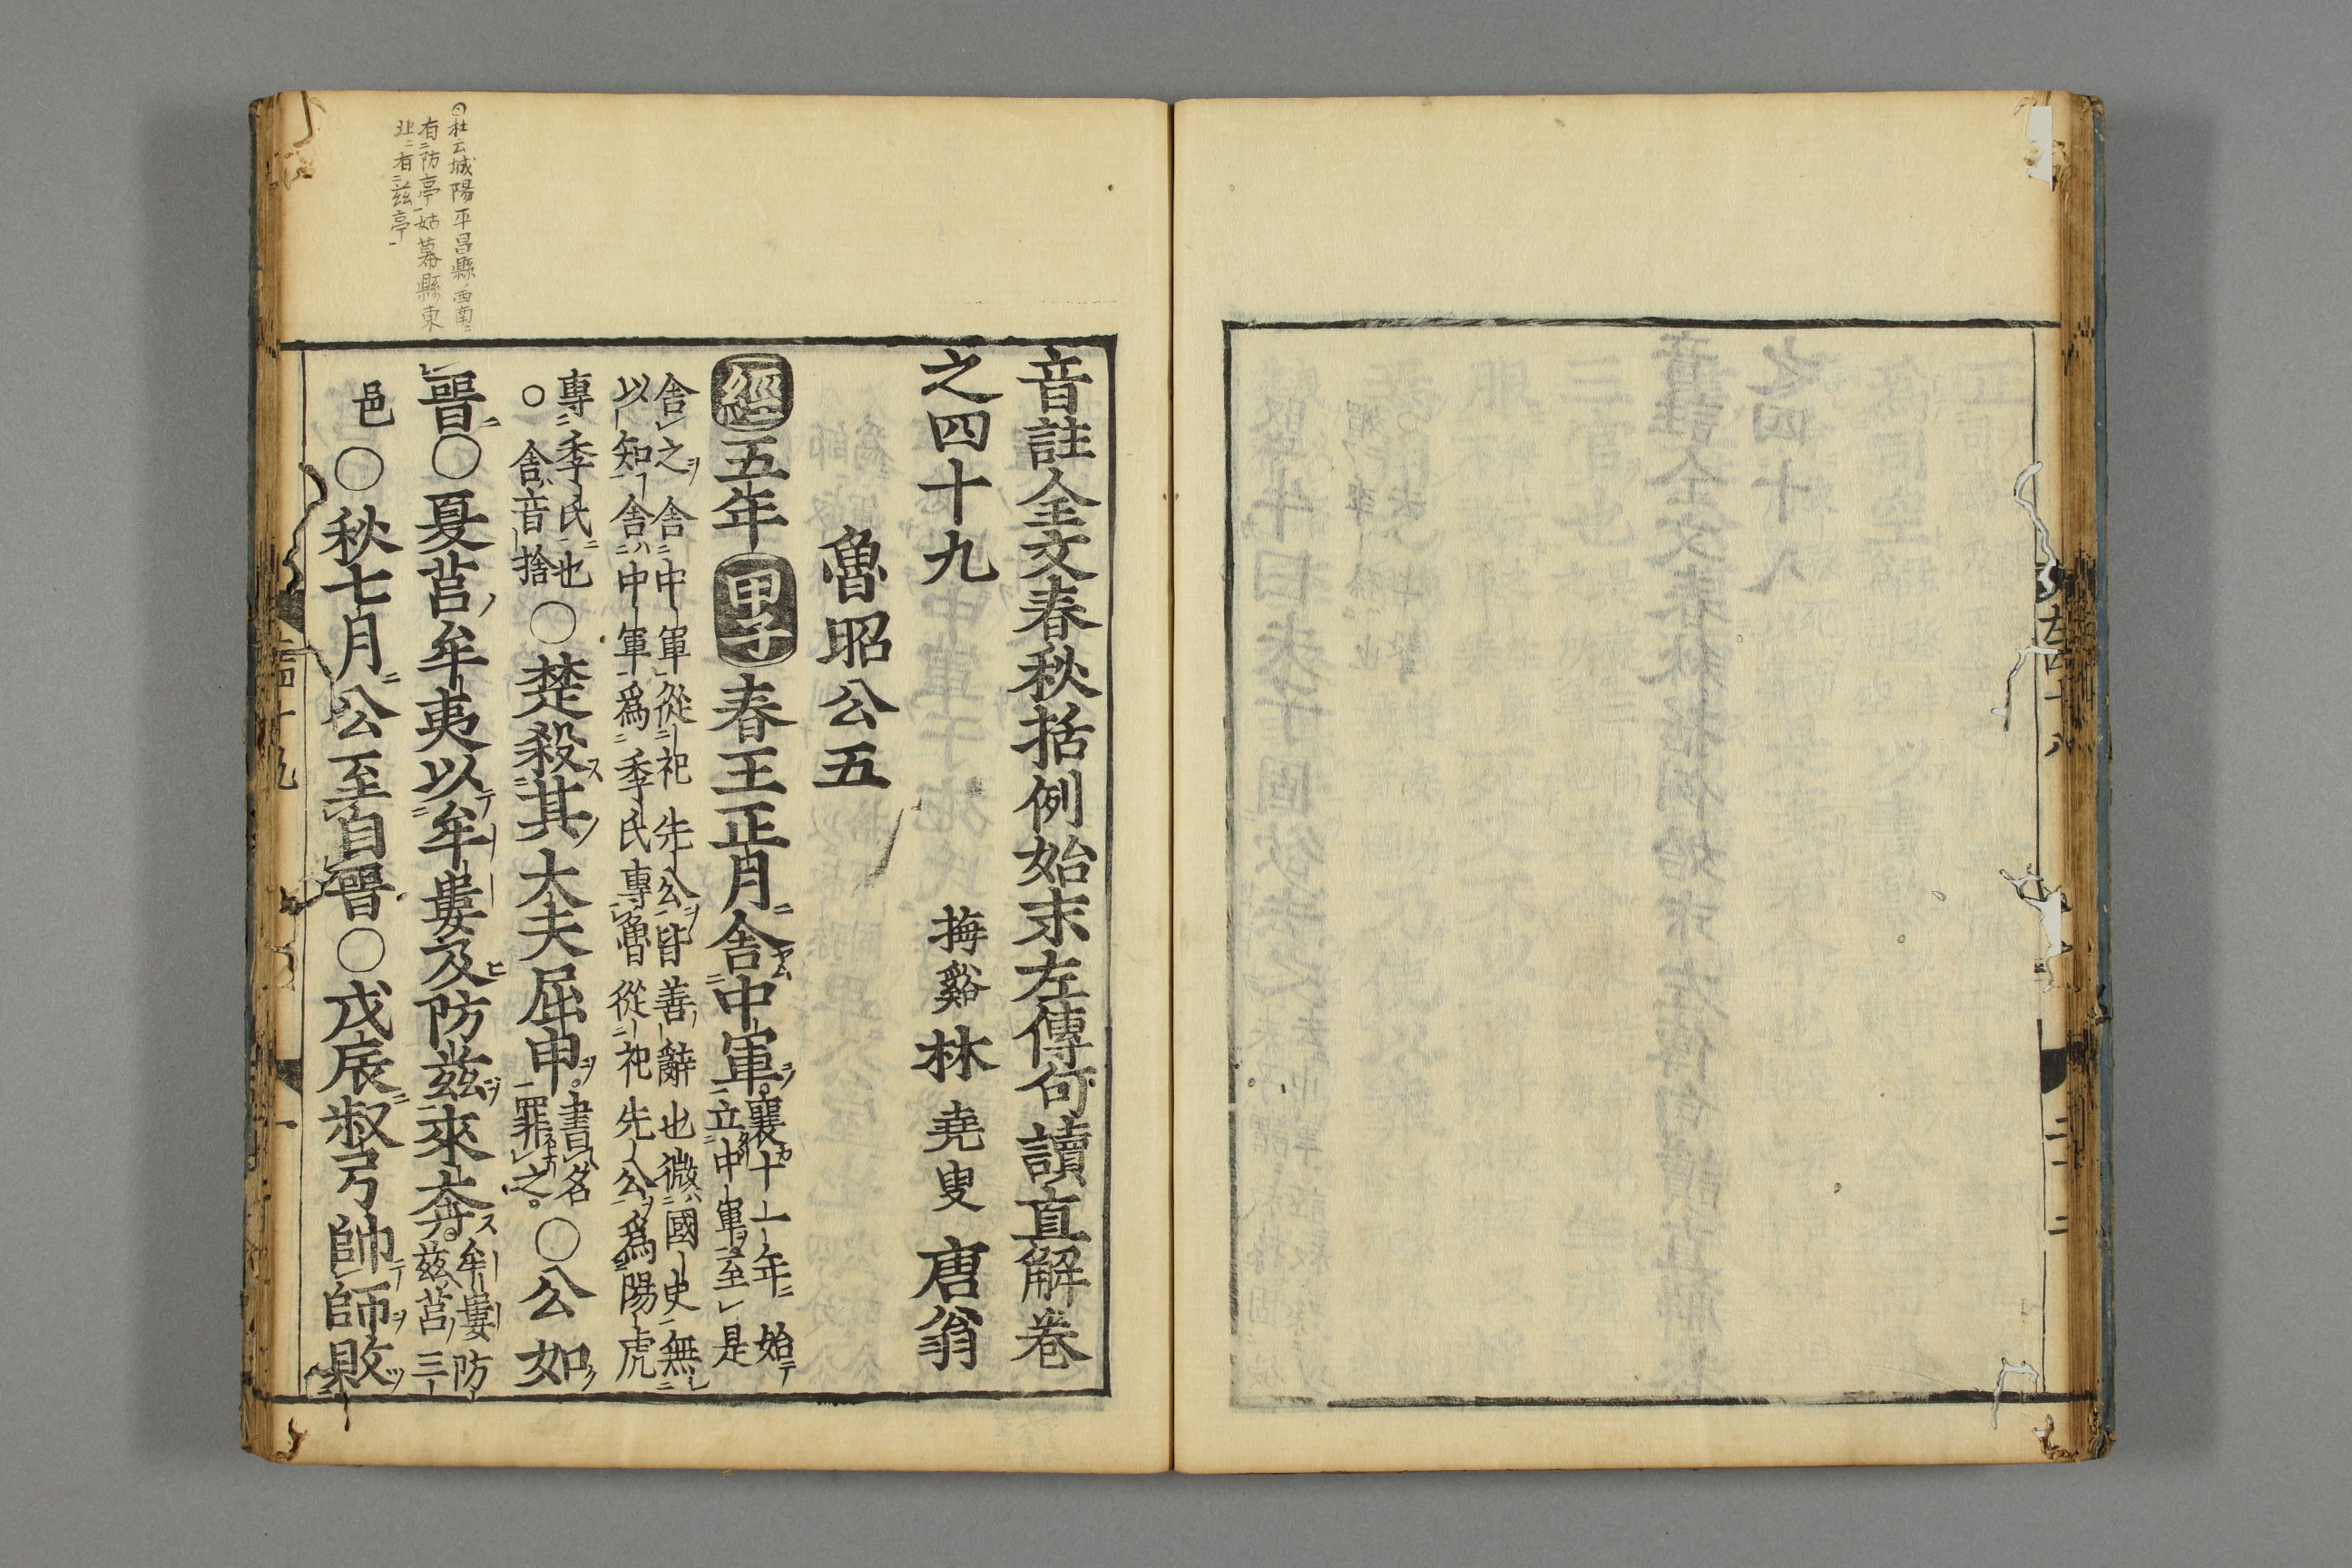 音註全文春秋括例始末左傳句讀直解卷
之四十九　梅谿　林　堯叟　唐翁
魯昭公五
經五年甲子春王正月舍中軍襄十一年始
立中軍至是
舍之舍中軍從祀先公皆善辭也微國史無
以知舍中軍爲季氏專魯從祀先公爲陽虎
專季氏也
○舍音捨○楚殺其大夫屈申書名
罪之○公如
晉○夏莒牟夷以牟婁及防兹來奔牟婁防
兹莒三
邑○秋七月公至自晉○戊辰叔弓帥師敗
⊙杜云城陽平昌縣ノ西南ニ
有ニ防亭一姑幕縣東
北ニ有ニ兹亭一
左四十八
二十二